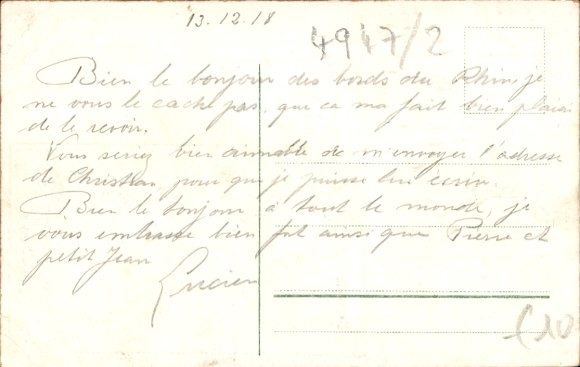 13.12.18
4947/2
Bien le bonjour des bords du Rhin, je
ne vous le cache pas que ca ma fait bien plaisir
de le revoir.
Vous seriez bien aimable de m'envoyer l'adresse
de Christian pour que je puisse lui écrire.
Bien le bonjour à tout le monde, je
vous embrasse bien fort ainsi que Pierre et
petit Jean
Lucien